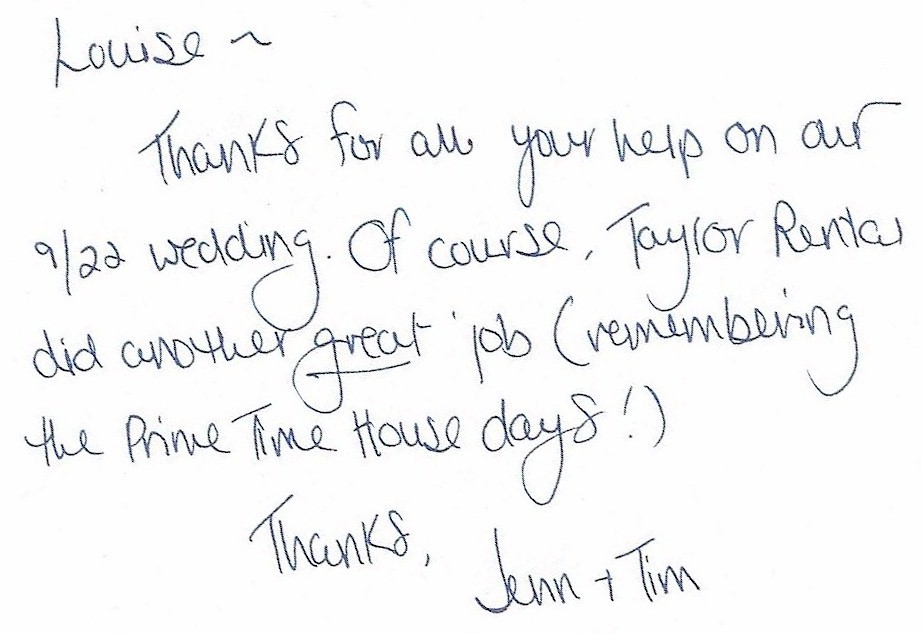 Louise ~
Thanks for all your help on our
9/22 wedding. Of course, Taylor Rental
did another great job (remembering
the Prime Time House days!)
Thanks,
Jenn + Tim